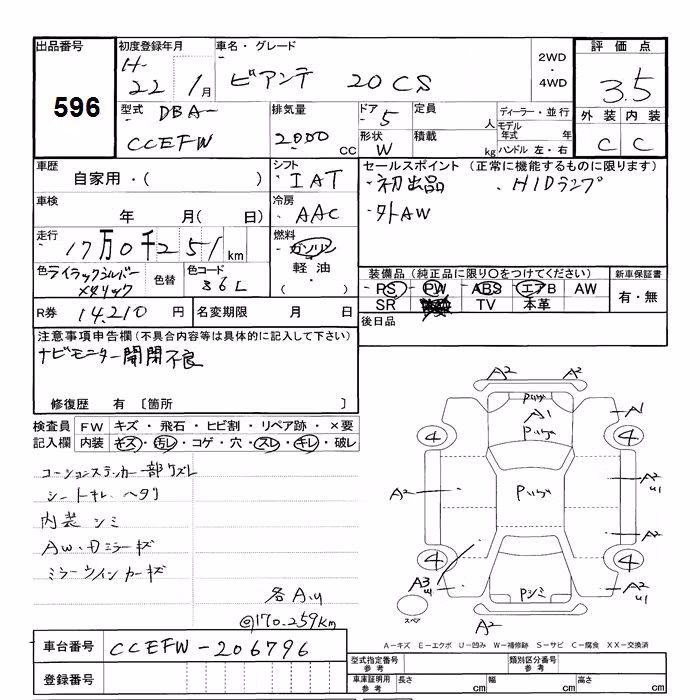 出品番号 初度登録年月 車名・グレード 評価点
596
H-22年1月 ビアンテ 20CS 2WD・4WD 3.5
型式 DBA- 排気量 ドア 5 定員 人 ディーラー・並行 外装 内装
CCEFW 2000cc 形状 W 積載 kg モデル年式 年 ハンドル 左・右 C C
車歴 自家用・( ) シフト IAT セールスポイント (正常に機能するものに限ります)
・初出品 ・HIDランプ
車検 年 月(日) 冷房 AAC ・外AW
走行 17万0千251km 燃料 ガソリン
軽油・( )
色 ライラックシルバーメタリック 色替 色コード 36L
装備品(純正品に限り○をつけてください) 新車保証書
RS PW ABS エアB AW 有・無
SR TV 本革
R券 14,210円 名変期限 月 日 後日品
注意事項申告欄(不具合内容等は具体的に記入して下さい)
ナビモニター開閉不良
修復歴 有 〔箇所 〕
検査員 FW キズ・飛石・ヒビ割・リペア跡・×要
記入欄 内装 キズ・汚レ・コゲ・穴・スレ・キレ・破レ
コーションステッカー一部ケズレ
シートキレ ヘタリ
内装 シミ
AW・ドミラーキズ
ミラーウインカーキズ
各AU
@170.259km
A2 A2
Pツヤ
A1
Pツヤ
A
4 4
A2 Pツヤ A2 U1
A2
4 4
A3 U1 Pシミ A2 U1
スペア
A2
A-キズ E-エクボ U-凹み W-補修跡 S-サビ C-腐食 XX-交換済
車台番号 CCEFW-206796
登録番号
型式指定番号 参考 類別区分番号 参考
車庫証明用 参考 長さ cm 幅 cm 高さ cm